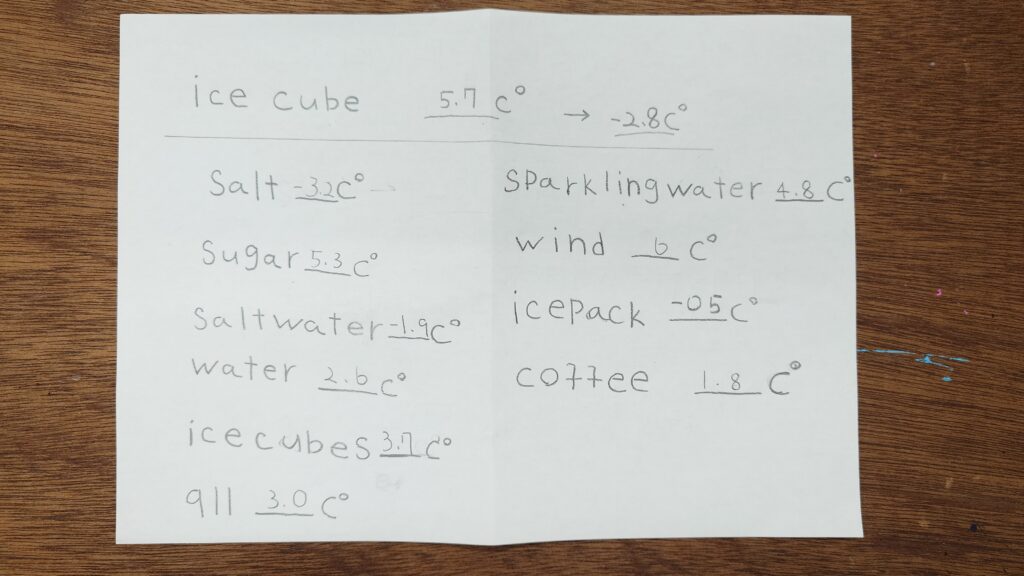 ice cube 5.7 C° → -2.8C°
Salt -32C°
Sugar 5.3 C°
Saltwater -1.9C°
water 2.6 C°
icecubes 3.7 C°
all 3.0 C°
Sparklingwater 4.8 C°
wind 6 C°
icepack -05C°
coffee 1.8 C°